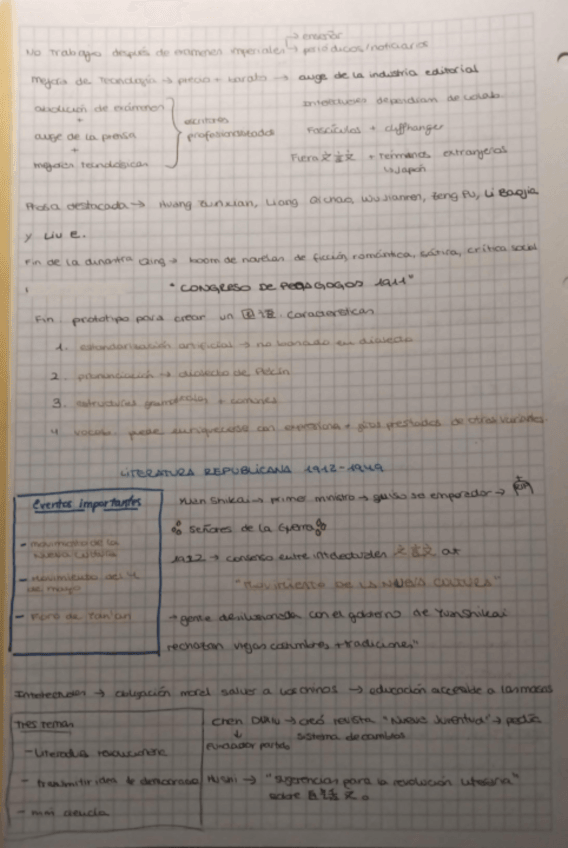 enseñar
No trabajan después de exámenes imperiales → periódicos/noticiarios
mejora de tecnología → precio + barato → auge de la industria editorial
abolición de exámenes
+
auge de la prensa
+
mejoras tecnológicas
escritores
profesionalizados
intelectuales dependían de
Fascículos + cliffhanger
Fuera 文言文 + términos extranjeros
Japón
Prosa destacada → Huang Zunxian, Liang Qichao, Wu Jianren, Zeng Pu, Li Baojia
y Liu E.
Fin de la dinastía Qing → boom de novelas de ficción romántica, sátira, crítica social
"CONGRESO DE PEDAGOGOS 1911"
Fin: prototipo para crear un 国语. Características
1. estandarización artificial → no basado en dialecto
2. pronunciación → dialecto de Pekín
3. estructuras gramaticales + comunes
4. vocab. puede enriquecerse con expresiones + giros prestados de otras variantes.
LITERATURA REPUBLICANA 1912-1949
Eventos importantes
- movimiento de la
Nueva Cultura
- Movimiento del 4
de mayo
- Foro de Yan'an
Yuan Shikai → primer ministro → quiso ser emperador →
Señores de la Guerra
→ consenso entre intelectuales 文言文
"MOVIMIENTO DE LA NUEVA CULTURA"
→ gente desilusionada con el gobierno de Yuan Shikai
rechazan viejas costumbres + tradiciones"
Intelectuales → obligación moral salvar a los chinos → educación accesible a las masas
Tres temas
- Literatura revolucionaria
- transmitir idea de democracia
- ciencia
Chen Duxiu → creó revista "Nueva Juventud" → pedía
↓
fundador partido
sistema de cambios
Hushi → "sugerencias para la revolución literaria"
sobre 白话文。